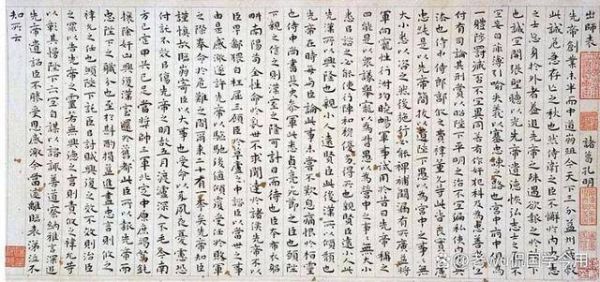 出師表
諸葛孔明
先帝創業未半而中道崩殂今天下三分益州疲
弊此誠危急存亡之秋也然侍衛之臣不懈於內忠志
之士忘身於外者蓋追先帝之殊遇欲報之於陛下
也誠宜開張聖聽以光先帝遺德恢弘志士之氣不
宜妄自菲薄引喻失義以塞忠諫之路也宮中府中俱為
一體陟罰臧否不宜異同若有作奸犯科及為忠善者宜
付有司論其刑賞以昭陛下平明之治不宜偏私使內外異
法也侍中侍郎郭攸之費禕董允等此皆良實志慮
忠純是以先帝簡拔以遺陛下愚以為宮中之事事無
大小悉以咨之然後施行必能裨補闕漏有所廣益將
軍向寵性行淑均曉暢軍事試用於昔日先帝稱之
曰能是以眾議舉寵以為督愚以為營中之事事無大小
悉以咨之必能使行陣和穆優劣得所也親賢臣遠小人此
先漢所以興隆也親小人遠賢臣此後漢所以傾頹也
先帝在時每與臣論此事未嘗不歎息痛恨於桓靈
也侍中尚書長史參軍此悉貞亮死節之臣也願陛下
親之信之則漢室之隆可計日而待也臣本布衣躬
耕南陽苟全性命於亂世不求聞達於諸侯先帝不以
臣卑鄙猥自枉屈三顧臣於草廬之中諮臣以當世之事
由是感激遂許先帝以驅馳後值傾覆受任於敗軍
之際奉命於危難之間爾來二十有一年矣先帝知臣
謹慎故臨崩寄臣以大事也受命以來夙夜憂慮恐
付託不效以傷先帝之明故五月渡瀘深入不毛今南
方已定甲兵已足當獎帥三軍北定中原庶竭駑鈍
攘除姦凶興復漢室還於舊都此臣所以報先帝而
忠陛下之職分也至於斟酌損益進盡忠言則攸之
禕允之任也願陛下託臣以討賊興復之效不效則治臣
之罪以告先帝之靈若無興德之言則責攸之禕允等
以彰其慢陛下亦宜自謀以諮諏善道察納雅言深追
先帝遺詔臣不勝受恩感激今當遠離臨表涕泣不
知所云